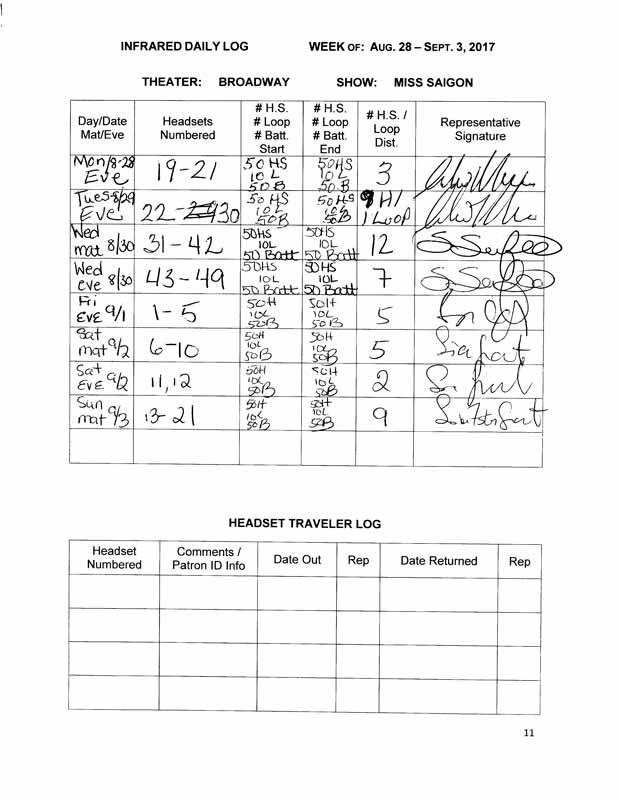 INFRARED DAILY LOG WEEK OF: AUG. 28 – SEPT. 3, 2017
THEATER: BROADWAY SHOW: MISS SAIGON
Day/Date Mat/Eve Headsets Numbered # H.S. # Loop # Batt. Start # H.S. # Loop # Batt. End # H.S. / Loop Dist. Representative Signature
Mon/8-28 Eve 19-21 50HS 10L 50B 50HS 10L 50B 3
Tues-8/29 EVE 22- 30 50HS 10L 50B 50HS 10L 50B 9 H/ 1 Loop
Wed mat 8/30 31-42 50HS 10L 50 Batt 50HS 10L 50 Batt 12
Wed eve 8/30 43-49 50HS 10L 50 Batt 50HS 10L 50 Batt 7
Fri EVE 9/1 1-5 50H 10L 50B 50H 10L 50B 5
Sat mat 9/2 6-10 50H 10L 50B 50H 10L 50B 5
Sat EVE 9/2 11,12 50H 10L 50B 50H 10L 50B 2
Sun mat 9/3 13-21 50H 10L 50B 50H 10L 50B 9
HEADSET TRAVELER LOG
Headset Numbered Comments / Patron ID Info Date Out Rep Date Returned Rep
11